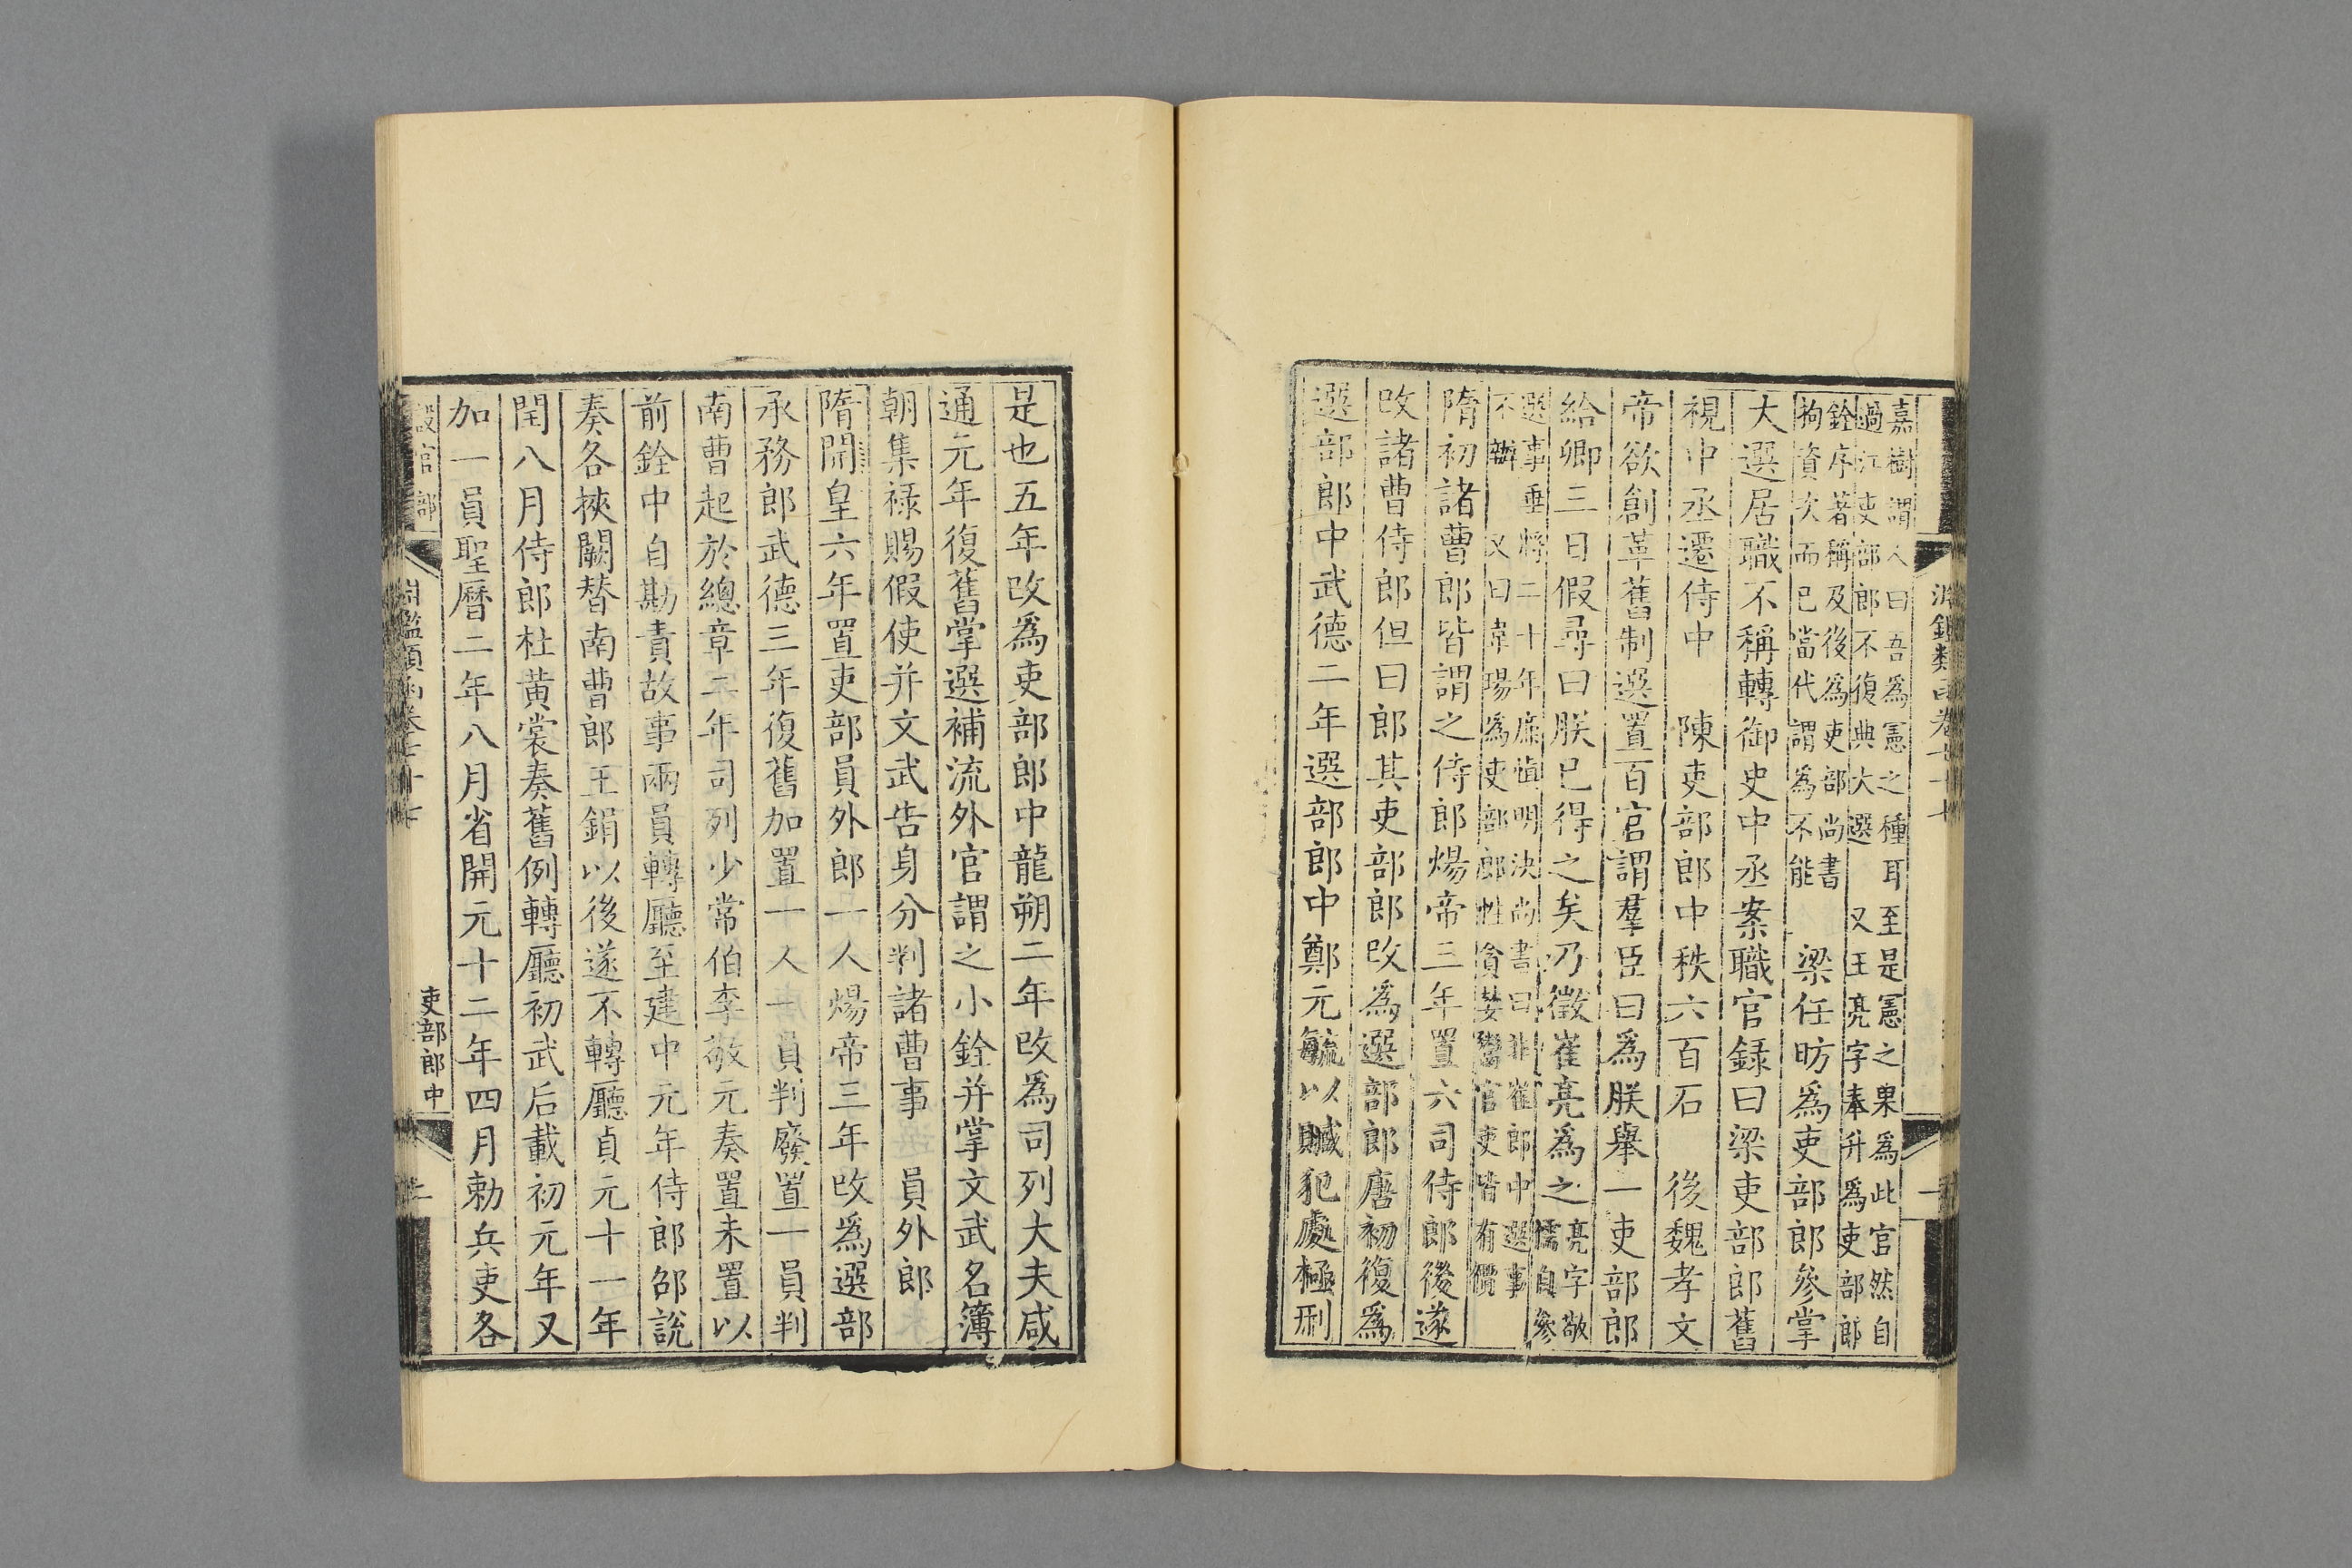 嘉樹謂人曰吾爲憲之種耳至是憲之果爲此官然自
過江吏部郎不復典大選　又王亮字奉升爲吏部郎
銓序著稱及後爲吏部尚書
拘資次而已當代謂爲不能
梁任昉爲吏部郎參掌
大選居職不稱轉御史中丞案職官録曰梁吏部郎舊
視中丞遷侍中　陳吏部郎中秩六百石　後魏孝文
帝欲創革舊制選置百官謂羣臣曰爲朕舉一吏部郎
給卿三日假尋曰朕已得之矣乃徵崔亮爲之
亮字敬
儒自參
選事垂將二十年廉慎明決尚書曰非崔郎中選事
不辦　又曰韋暘爲吏部郎性貪婪鬻官吏皆有價
隋初諸曹郎皆謂之侍郎煬帝三年置六司侍郎後遂
改諸曹侍郎但曰郎其吏部郎改爲選部郎唐初復爲
選部郎中武德二年選部郎中鄭元毓以贓犯處極刑
是也五年改爲吏部郎中龍朔二年改爲司列大夫咸
通元年復舊掌選補流外官謂之小銓并掌文武名簿
朝集禄賜假使并文武告身分判諸曹事　員外郎
隋開皇六年置吏部員外郎一人煬帝三年改爲選部
承務郎武德三年復舊加置一人一員判廢置一員判
南曹起於總章二年司列少常伯李敬元奏置未置以
前銓中自勘責故事兩員轉廳至建中元年侍郎邵說
奏各挾闕替南曹郎王鋗以後遂不轉廳貞元十一年
閏八月侍郎杜黄裳奏舊例轉廳初武后載初元年又
加一員聖曆二年八月省開元十二年四月勅兵吏各
設官部
淵鑑類函卷七十七
吏部郎中
二